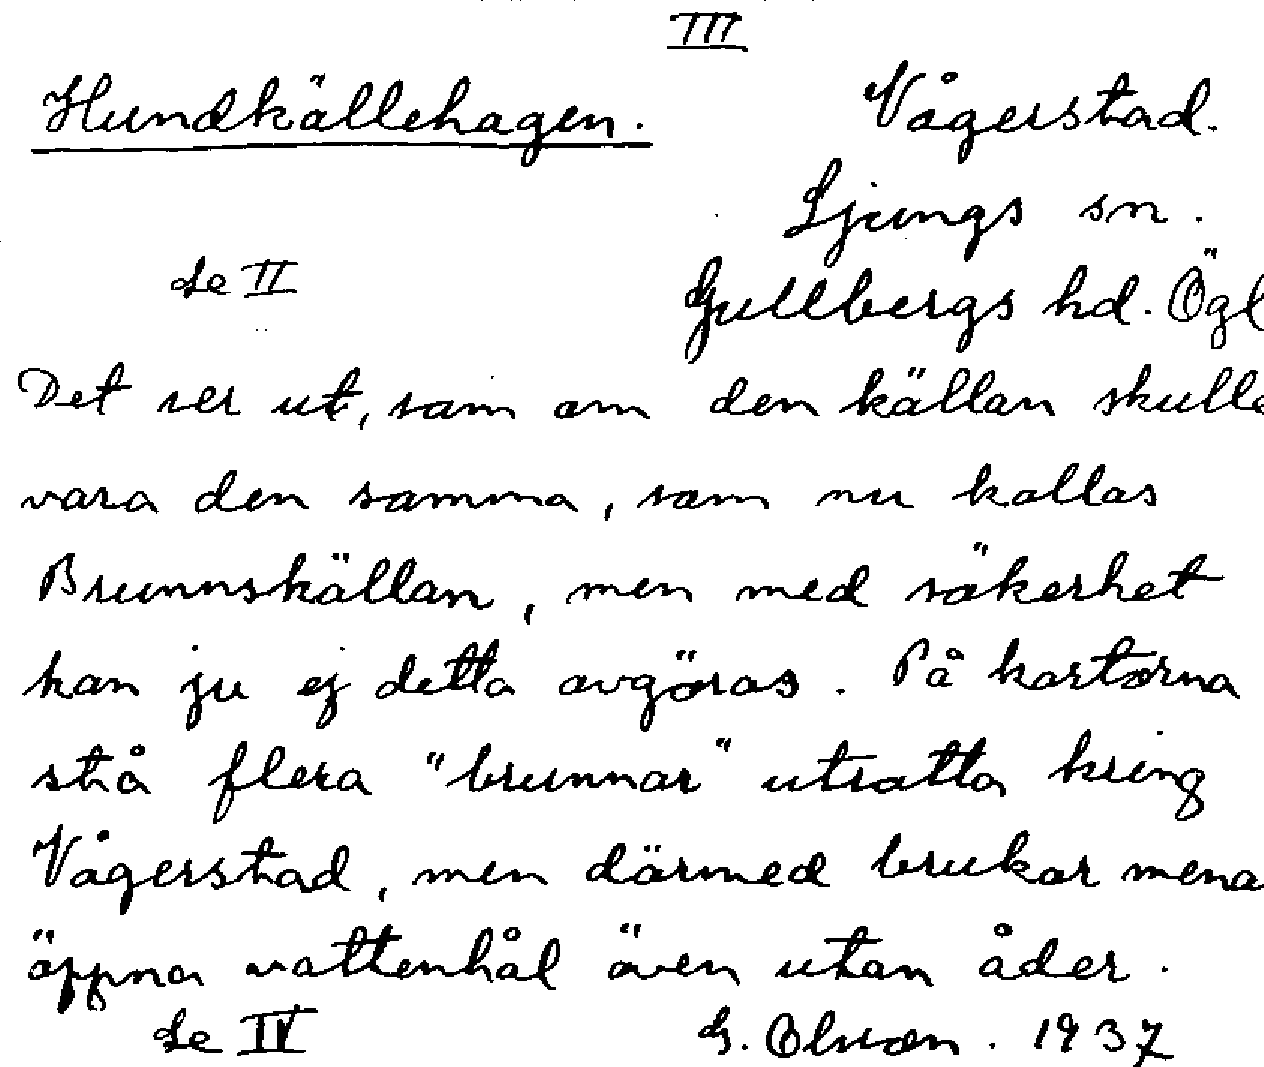 III
Hundkällehagen. Vågerstad.
Ljungs sn.
Se II Gullbergs hd. Ögl
Det ser ut, som om den källan skulle
vara den samma, som nu kallas
Brunnskällan, men med säkerhet
kan ju ej detta avgöras. På kartorna
stå flera "brunnar" utsatta kring
Vågerstad, men därmed brukar mena
öppna vattenhål även utan åder.
Se IV G. Olsson. 1937